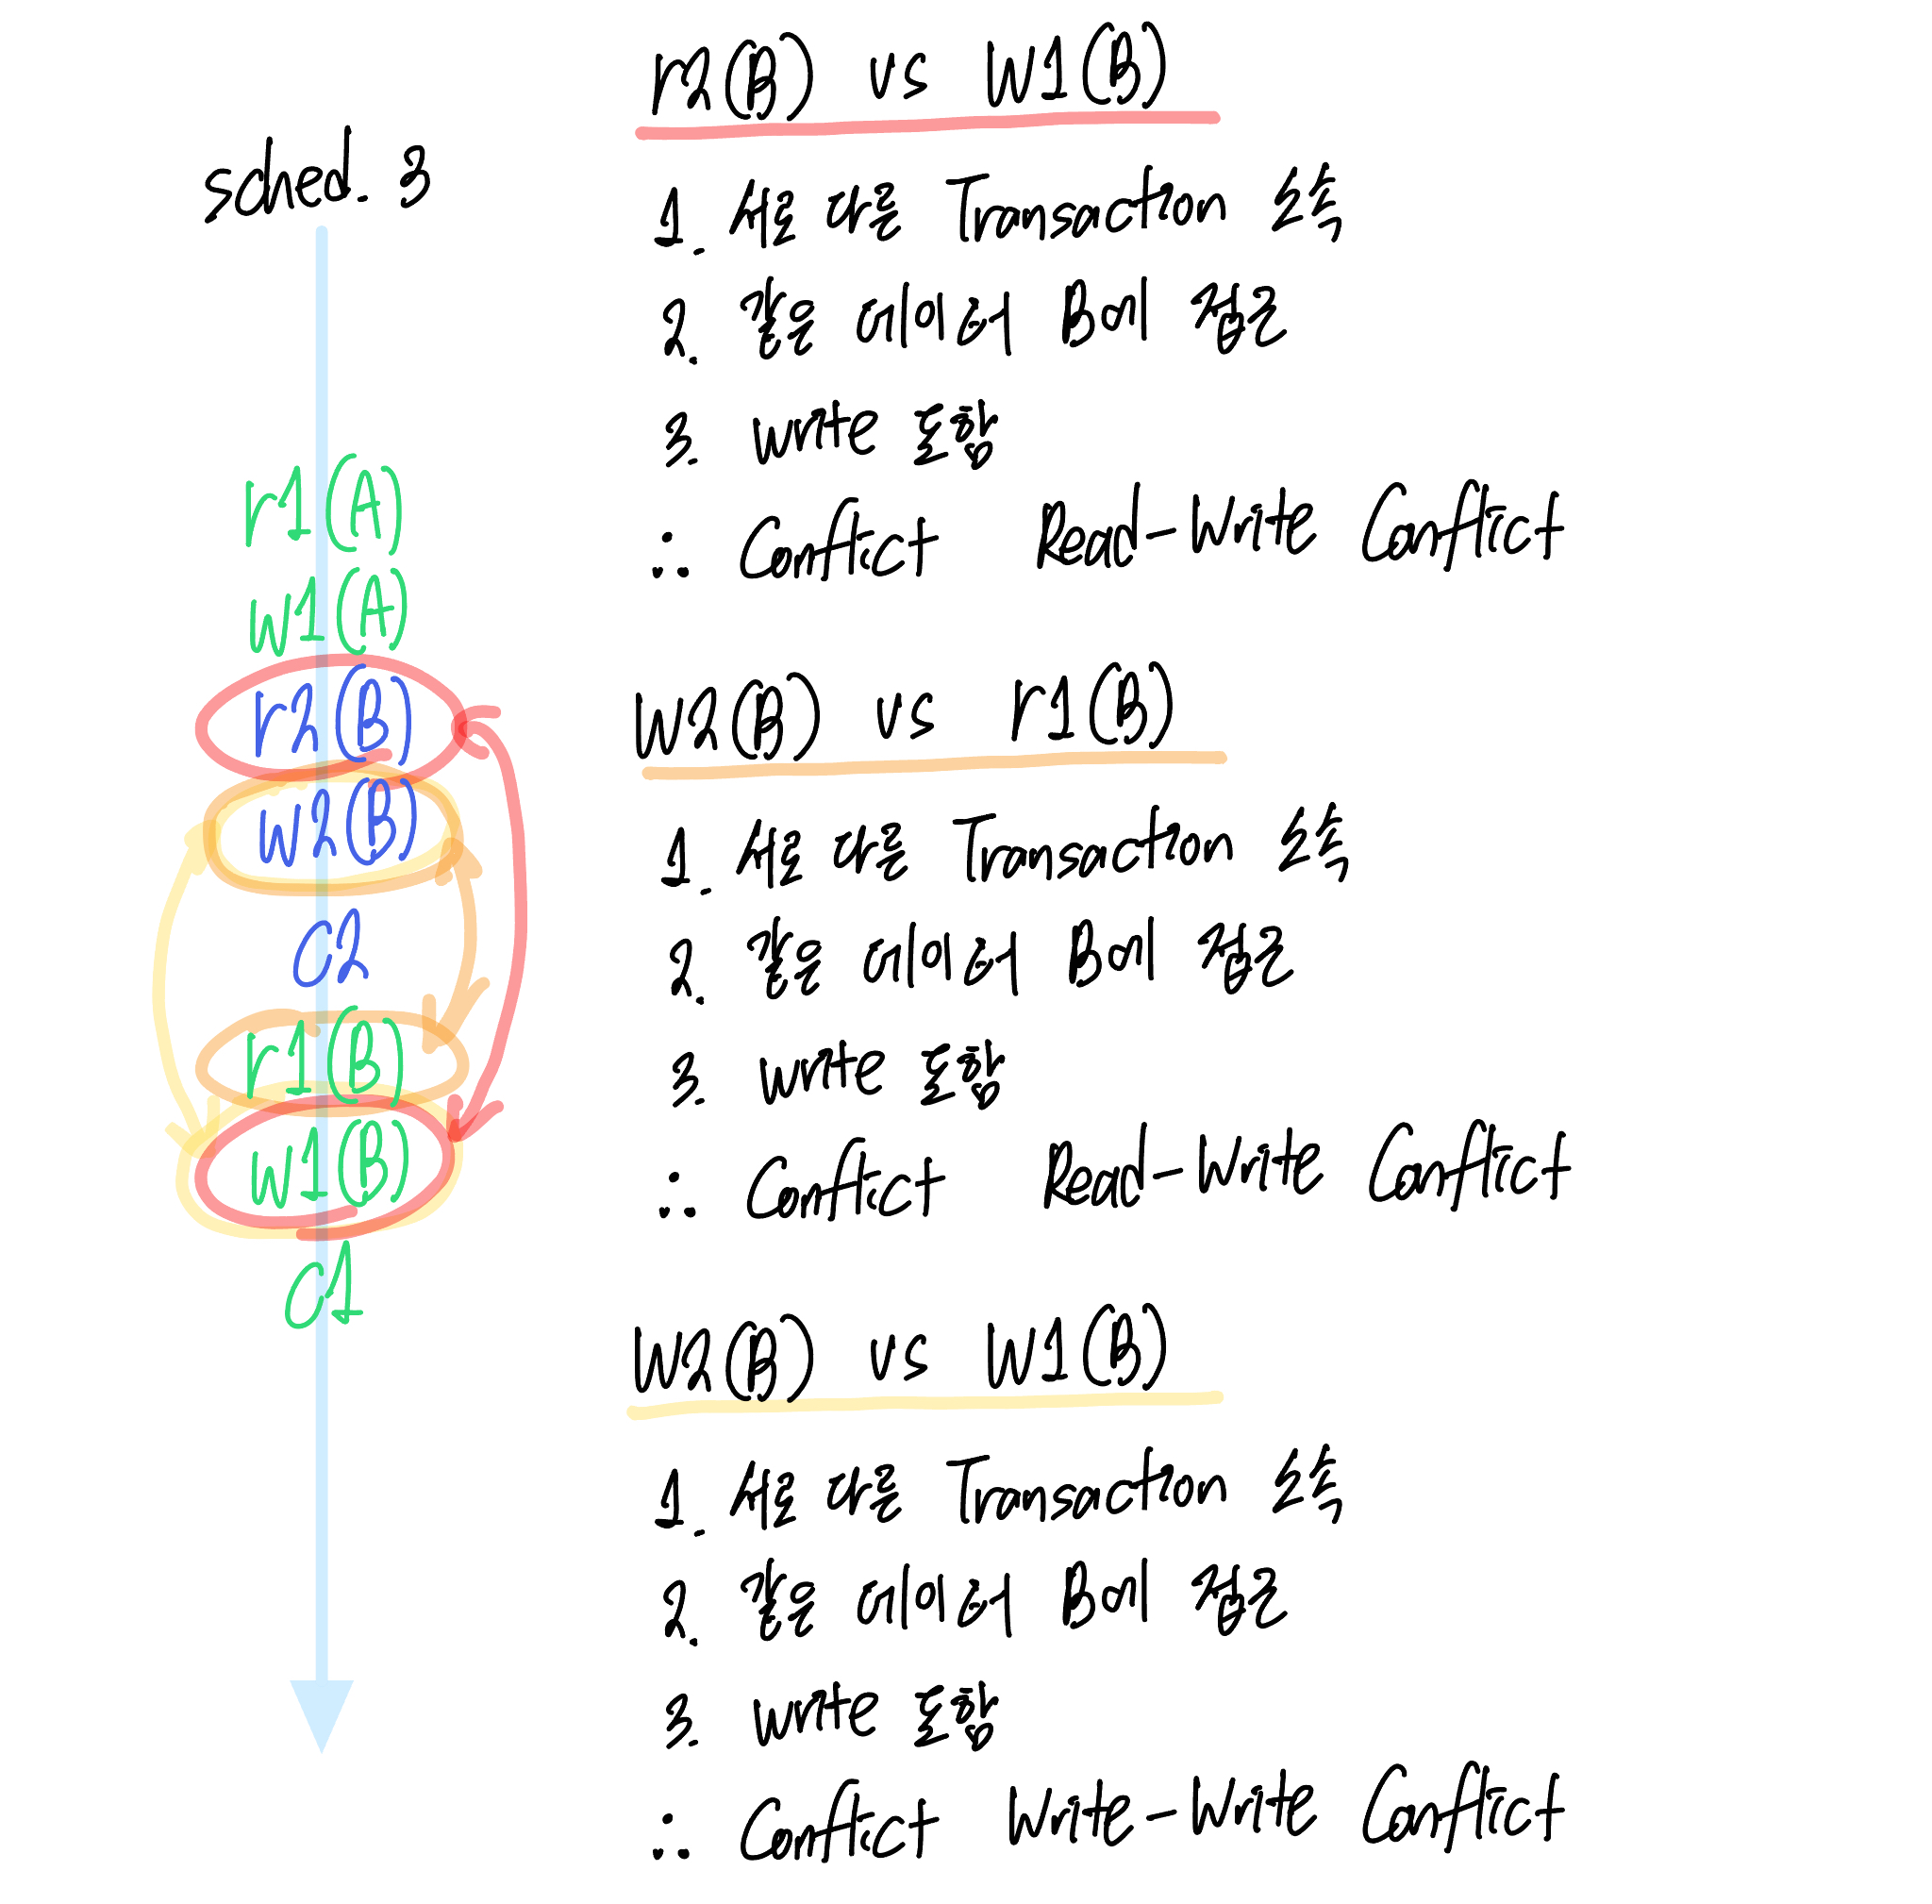 sched. 3
r1(A)
w1(A)
r2(B)
w2(B)
c2
r1(B)
w1(B)
c1
r2(B) vs W1(B)
1. 서로 다른 Transaction 소속
2. 같은 데이터 B에 접근
3. write 포함
∴ Conflict Read-Write Conflict
W2(B) vs r1(B)
1. 서로 다른 Transaction 소속
2. 같은 데이터 B에 접근
3. write 포함
∴ Conflict Read-Write Conflict
W2(B) vs W1(B)
1. 서로 다른 Transaction 소속
2. 같은 데이터 B에 접근
3. write 포함
∴ Conflict Write-Write Conflict